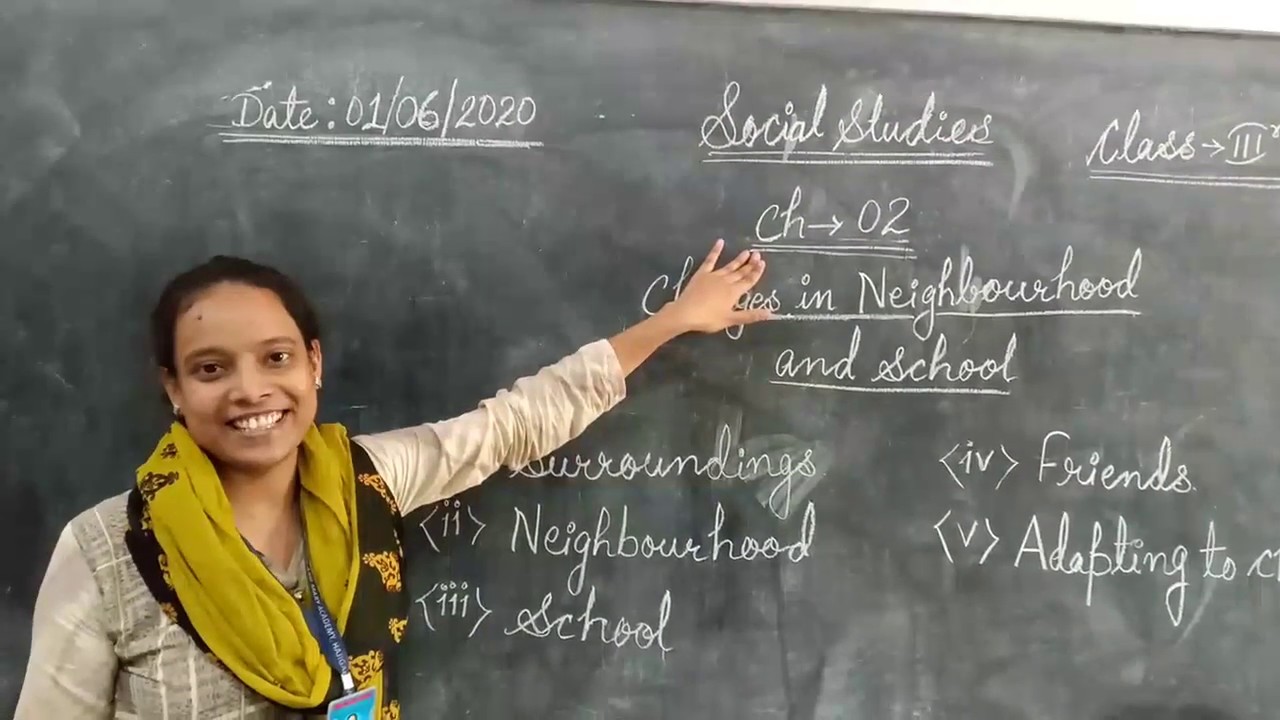 Date: 01/06/2020
Social Studies
Class → III
Ch → 02
in Neighbourhood
and School
Surroundings
<ii> Neighbourhood
<iii> School
<iv> Friends
<v> Adapting to
ACADEMY,